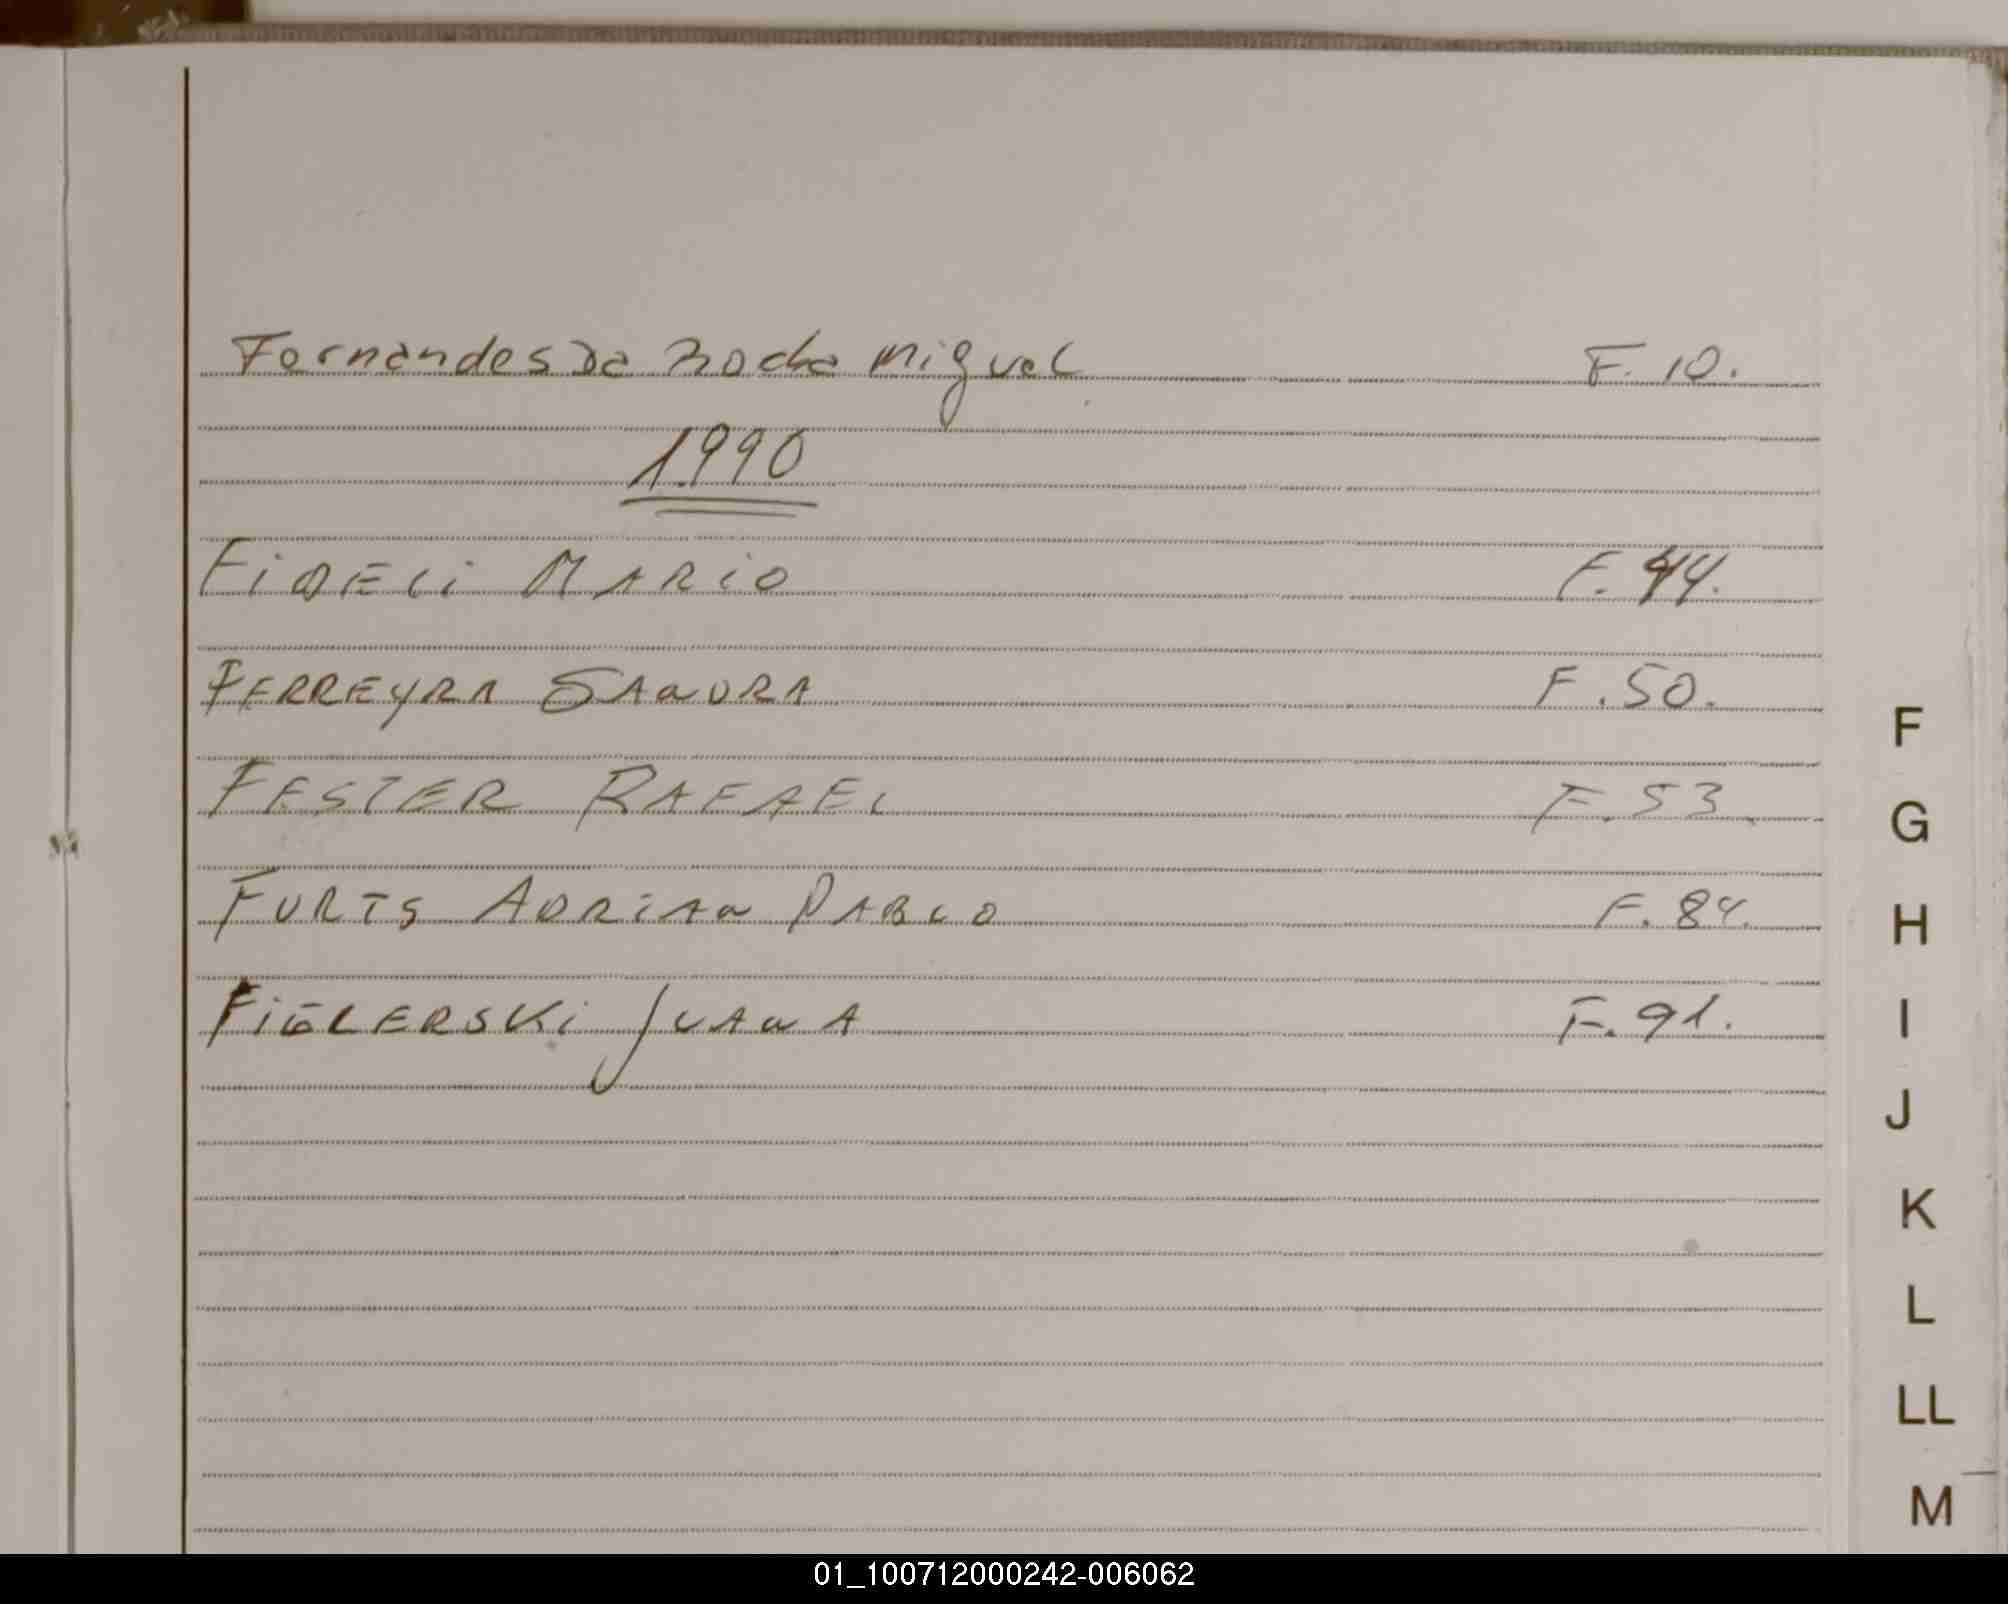 Fernandes Da Rocha Miguel F. 10.
1990
FiDELi MARiO F. 44.
FERREYRA SANDRA F. 50.
FESTER RAFAEL F. 53.
FURTS ADRiAN PABLO F. 84.
FiELERSKi JUANA F. 91.
F
G
H
I
J
K
L
LL
M
01_100712000242-006062